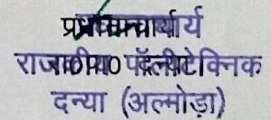 प्रधानाचार्य
राजकीय पॉलीटेक्निक
दन्या (अल्मोड़ा)